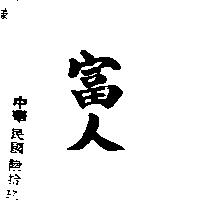 富人
中華民國陸拾